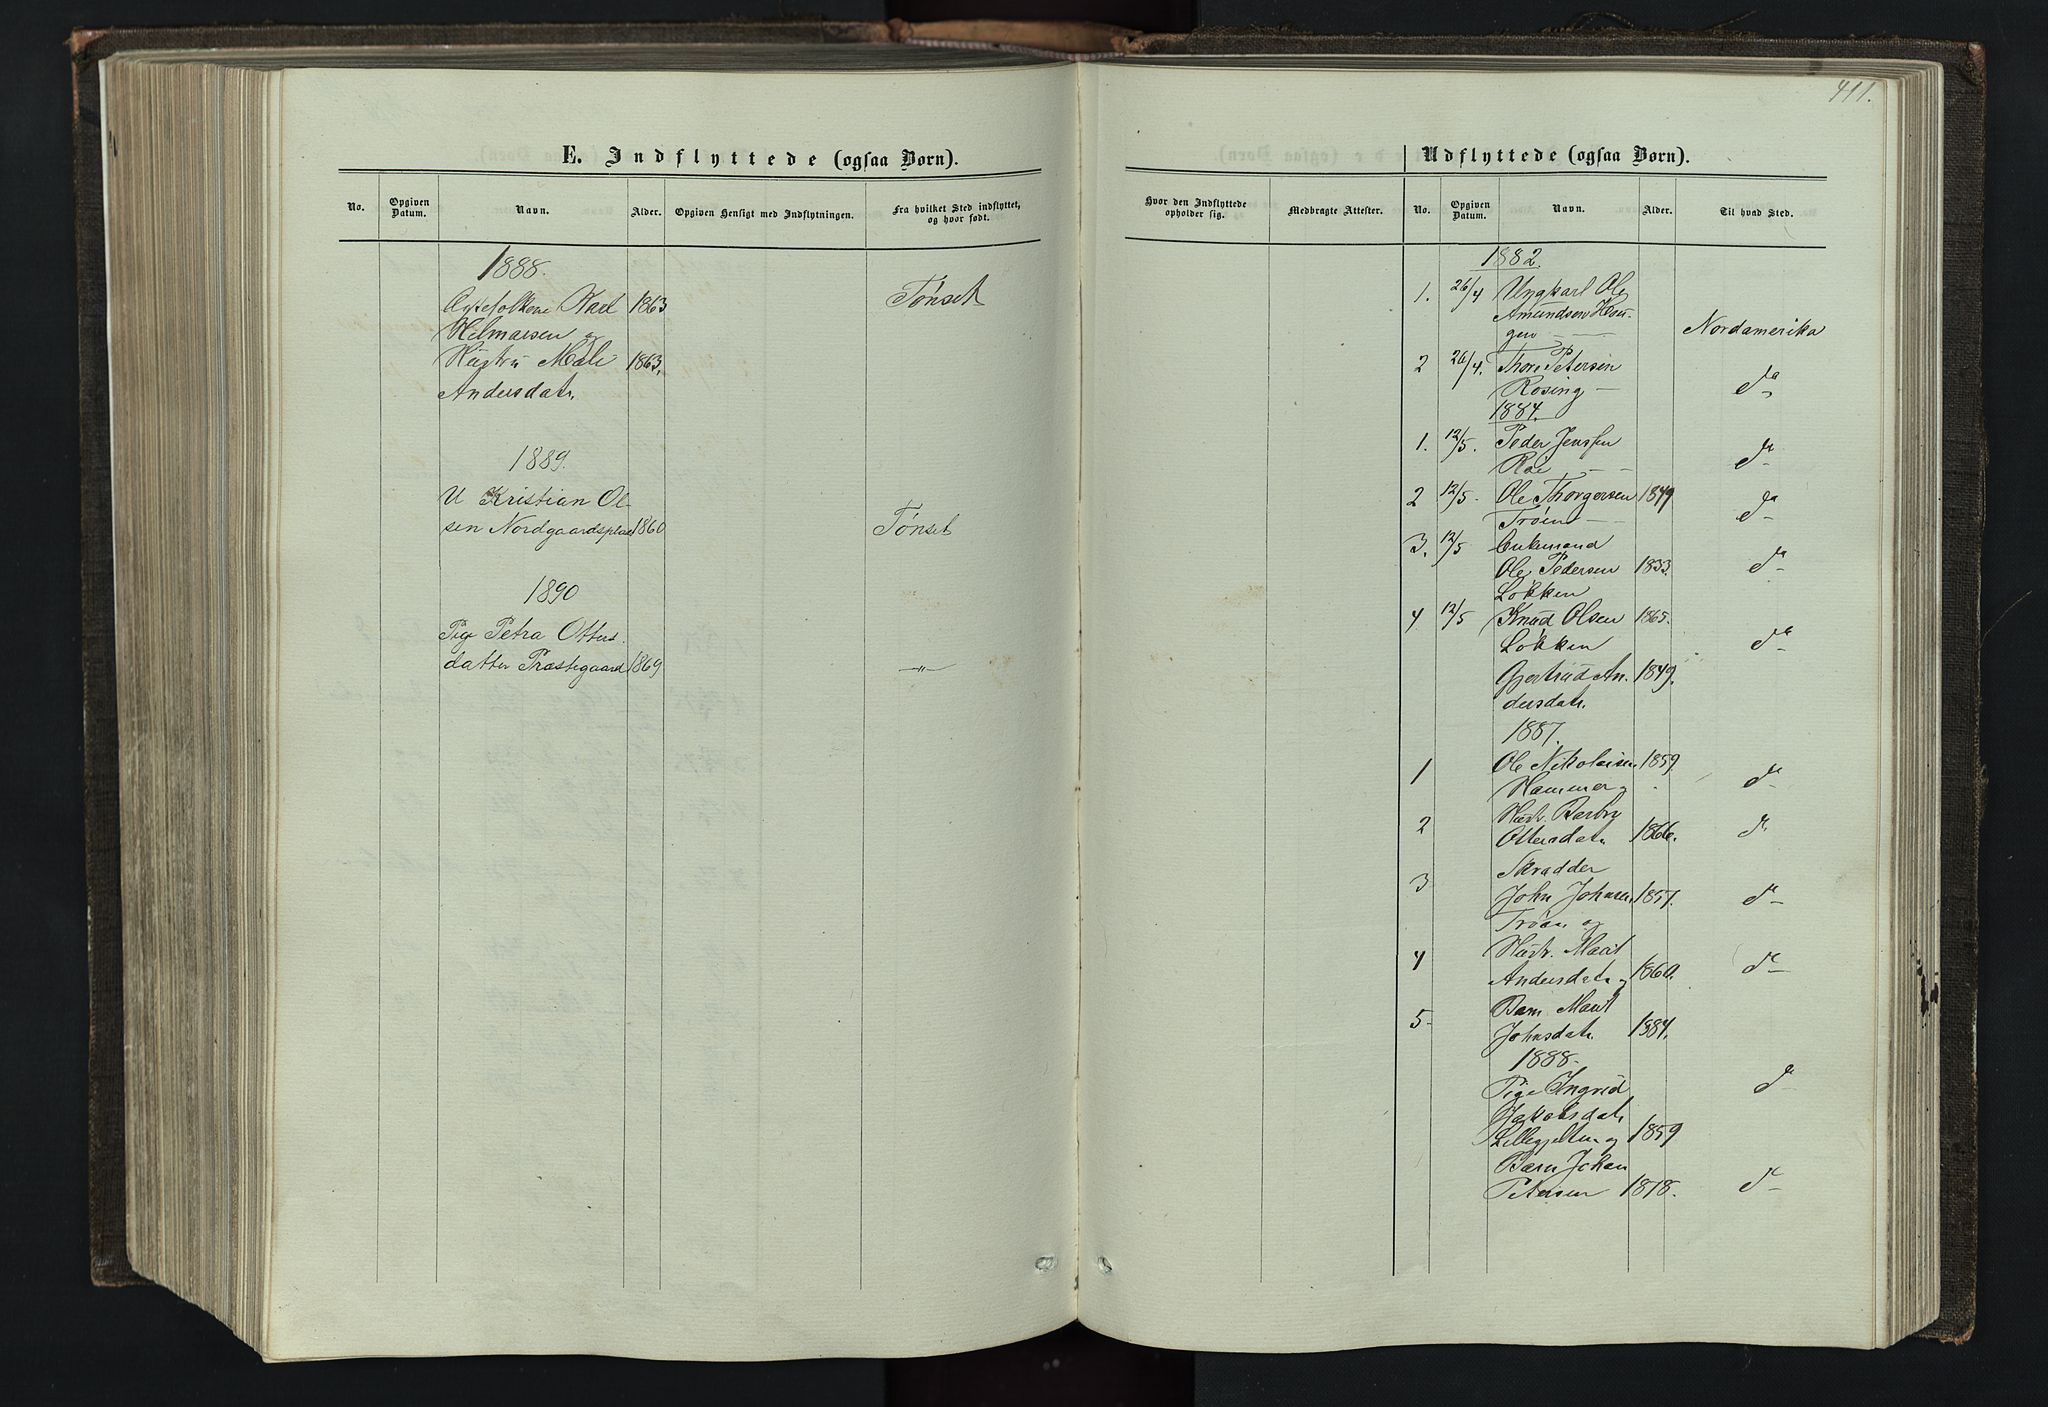 411.
E. Indflyttede (ogsaa Børn).
No.
Opgiven Datum.
Navn.
Alder.
Opgiven Hensigt med Indflytningen.
Fra hvilket Sted indflyttet, og hvor født.
1888.
Karl 1863 Tønset
Helmersen og
Hustru Mali 1863.
Andersdatr.
1889.
U Kristian Ol-
sen Nordgaardsplads 1860 Tønset
1890
Pige Petra Otters
datter Præstegaard 1869 —"—
Hvor den Indflyttede opholder sig.
Medbragte Attester.
Udflyttede (ogsaa Børn).
No.
Opgiven Datum.
Navn.
Alder.
Til hvad Sted.
1882.
1. 26/4 Ungkarl Ole
Amundsen Hau-
gen — Nordamerika
2 26/4. Thore Petersen
Rosing — do
1884.
1. 12/5. Peder Jenssen
Røe — — do
2 12/5. Ole Thorgersen 1849
Trøen — do
3. 12/5 Enkemand
Ole Pedersen 1833. do
Løkken
4 12/5 Knud Olsen 1865.
Løkken do
Gjertrud An- 1849.
dersdatr.
1887.
1 Ole Nikolaisen 1859.
Hammer og do
2 Hustr. Barbro
Ottersdatr. 1866. do
3 Skrædder
John Johnsen 1857. do
Trøen og
4 Hustr. Marit
Andersdatr. og 1860. do
5 Barn Marit
Johnsdatr. 1884.
1888.
Pige Ingrid do
Jakobsdatr.
og 1859
Barn Johan
Petersen 1878. do